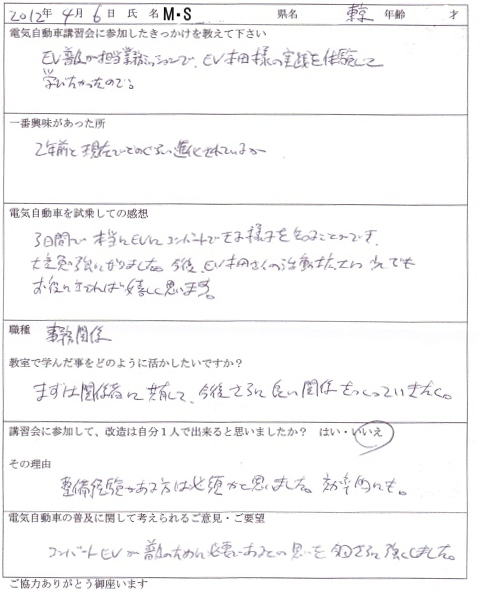 2012年4月6日 氏名 M・S 県名 東京 年齢 才
電気自動車講習会に参加したきっかけを教えて下さい
EV普及が担当業務ミッションで、EV本田様の実践を体験して
学びたかったので。
一番興味があった所
2年前と現在でどのぐらい進化されているか
電気自動車を試乗しての感想
3日間で本当にEVにコンバートできる様子を知ることができ、
大変勉強になりました。今後、EV本田さんの活動拡大に少しでも
お役にたてれば嬉しく思います。
職種 事務関係
教室で学んだ事をどのように活かしたいですか？
まずは関係者に共有して、今後さらに良い関係をつくっていきたく。
講習会に参加して、改造は自分1人で出来ると思いましたか？ はい・いいえ
その理由
整備経験がある方は必須かと思いました。効率的にも。
電気自動車の普及に関して考えられるご意見・ご要望
コンバートEVが普及のために 思いを さらに強くしました。
ご協力ありがとう御座います